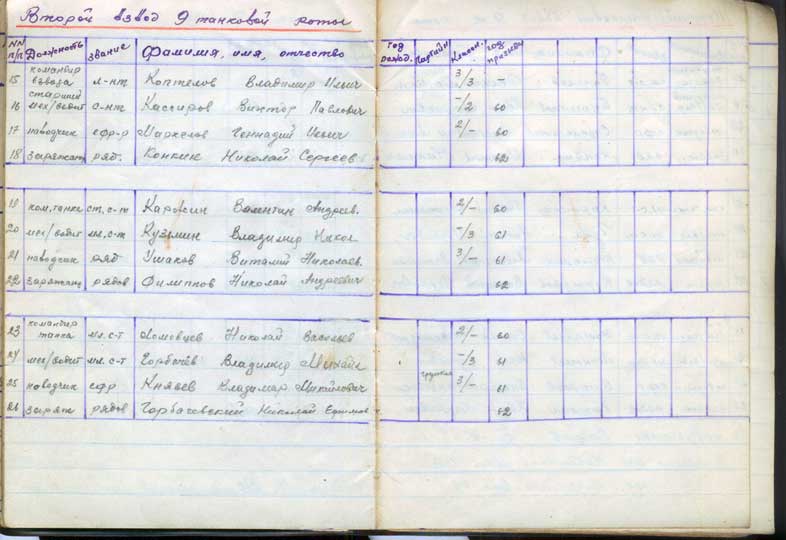 Второй взвод 9 танковой роты
NN п/п Должность звание Фамилия, имя, отчество год рожд. партийн год призыва
15 командир взвода л-нт Коптелов Владимир Ильич 3/3 -
16 старший мех/водит с-нт Кассиров Виктор Павлович -/2 60
17 наводчик ефр-р Маркелов Геннадий 2/- 60
18 заряжающ ряд. Конкин Николай Сергеев 62
19 ком. танка ст. с-т Валентин Андреев. 2/- 60
20 мех/водит мл. с-т Кузьмин Владимир -/3 61
21 наводчик ряд Ушаков Виталий Николаев. 3/- 61
22 заряжающ рядов Филиппов Николай Андреевич 62
23 командир танка мл. с-т Николай Васильев 2/- 60
24 мех/водит мл. с-т Горбачёв Владимир Михайл -/3 61
25 наводчик ефр Князев Владимир Михайлович 3/- 61
26 заряж рядов Горбачевский Николай Ефимов 62